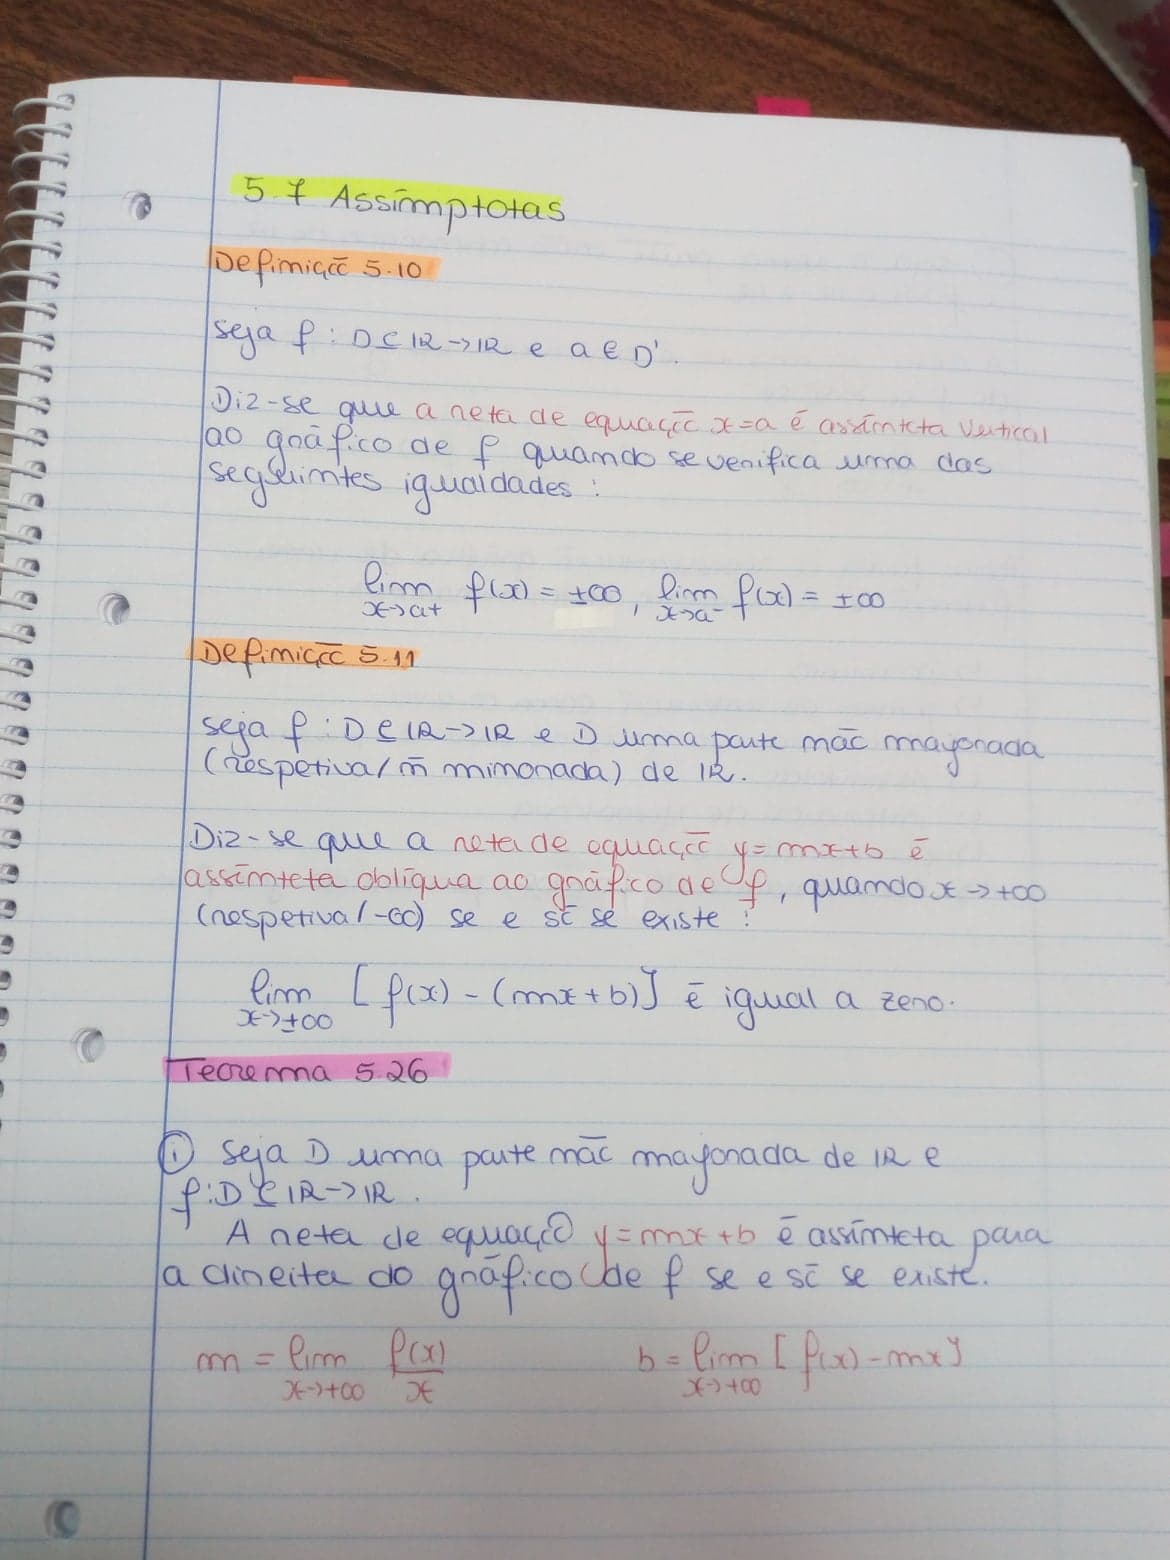 5.7 Assímptotas
Definição 5.10
Seja f : D ⊆ IR → IR e a ∈ D'.
Diz-se que a reta de equação x=a é assíntota vertical
ao gráfico de f quando se verifica uma das
seguintes igualdades :
lim f(x) = ±∞, lim f(x) = ±∞
x→a+ x→a-
Definição 5.11
seja f : D ⊆ IR → IR e D uma parte não majorada
(respetiva/ ñ minorada) de IR.
Diz-se que a reta de equação y = mx+b é
assíntota oblíqua ao gráfico de f, quando x → +∞
(respetiva/ -∞) se e só se existe :
lim [f(x) - (mx+b)] é igual a zero.
x→±∞
Teorema 5.26
① Seja D uma parte não majorada de IR e
f: D ⊆ IR → IR.
A reta de equação y=mx+b é assíntota para
a direita do gráfico de f se e só se existe.
m = lim f(x)/x b = lim [f(x) - mx]
x→+∞ x→+∞